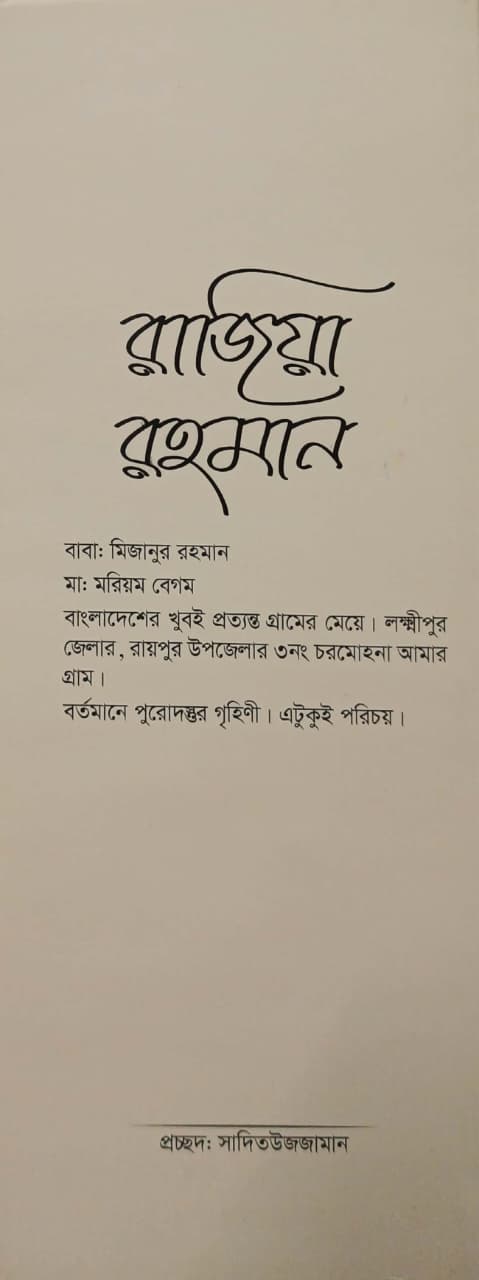 রাজিয়া
রহমান
বাবাঃ মিজানুর রহমান
মাঃ মরিয়ম বেগম
বাংলাদেশের খুবই প্রত্যন্ত গ্রামের মেয়ে। লক্ষ্মীপুর
জেলার, রায়পুর উপজেলার ৩নং চরমোহনা আমার
গ্রাম।
বর্তমানে পুরোদস্তুর গৃহিণী। এটুকুই পরিচয়।
প্রচ্ছদঃ সাদিতউজজামান